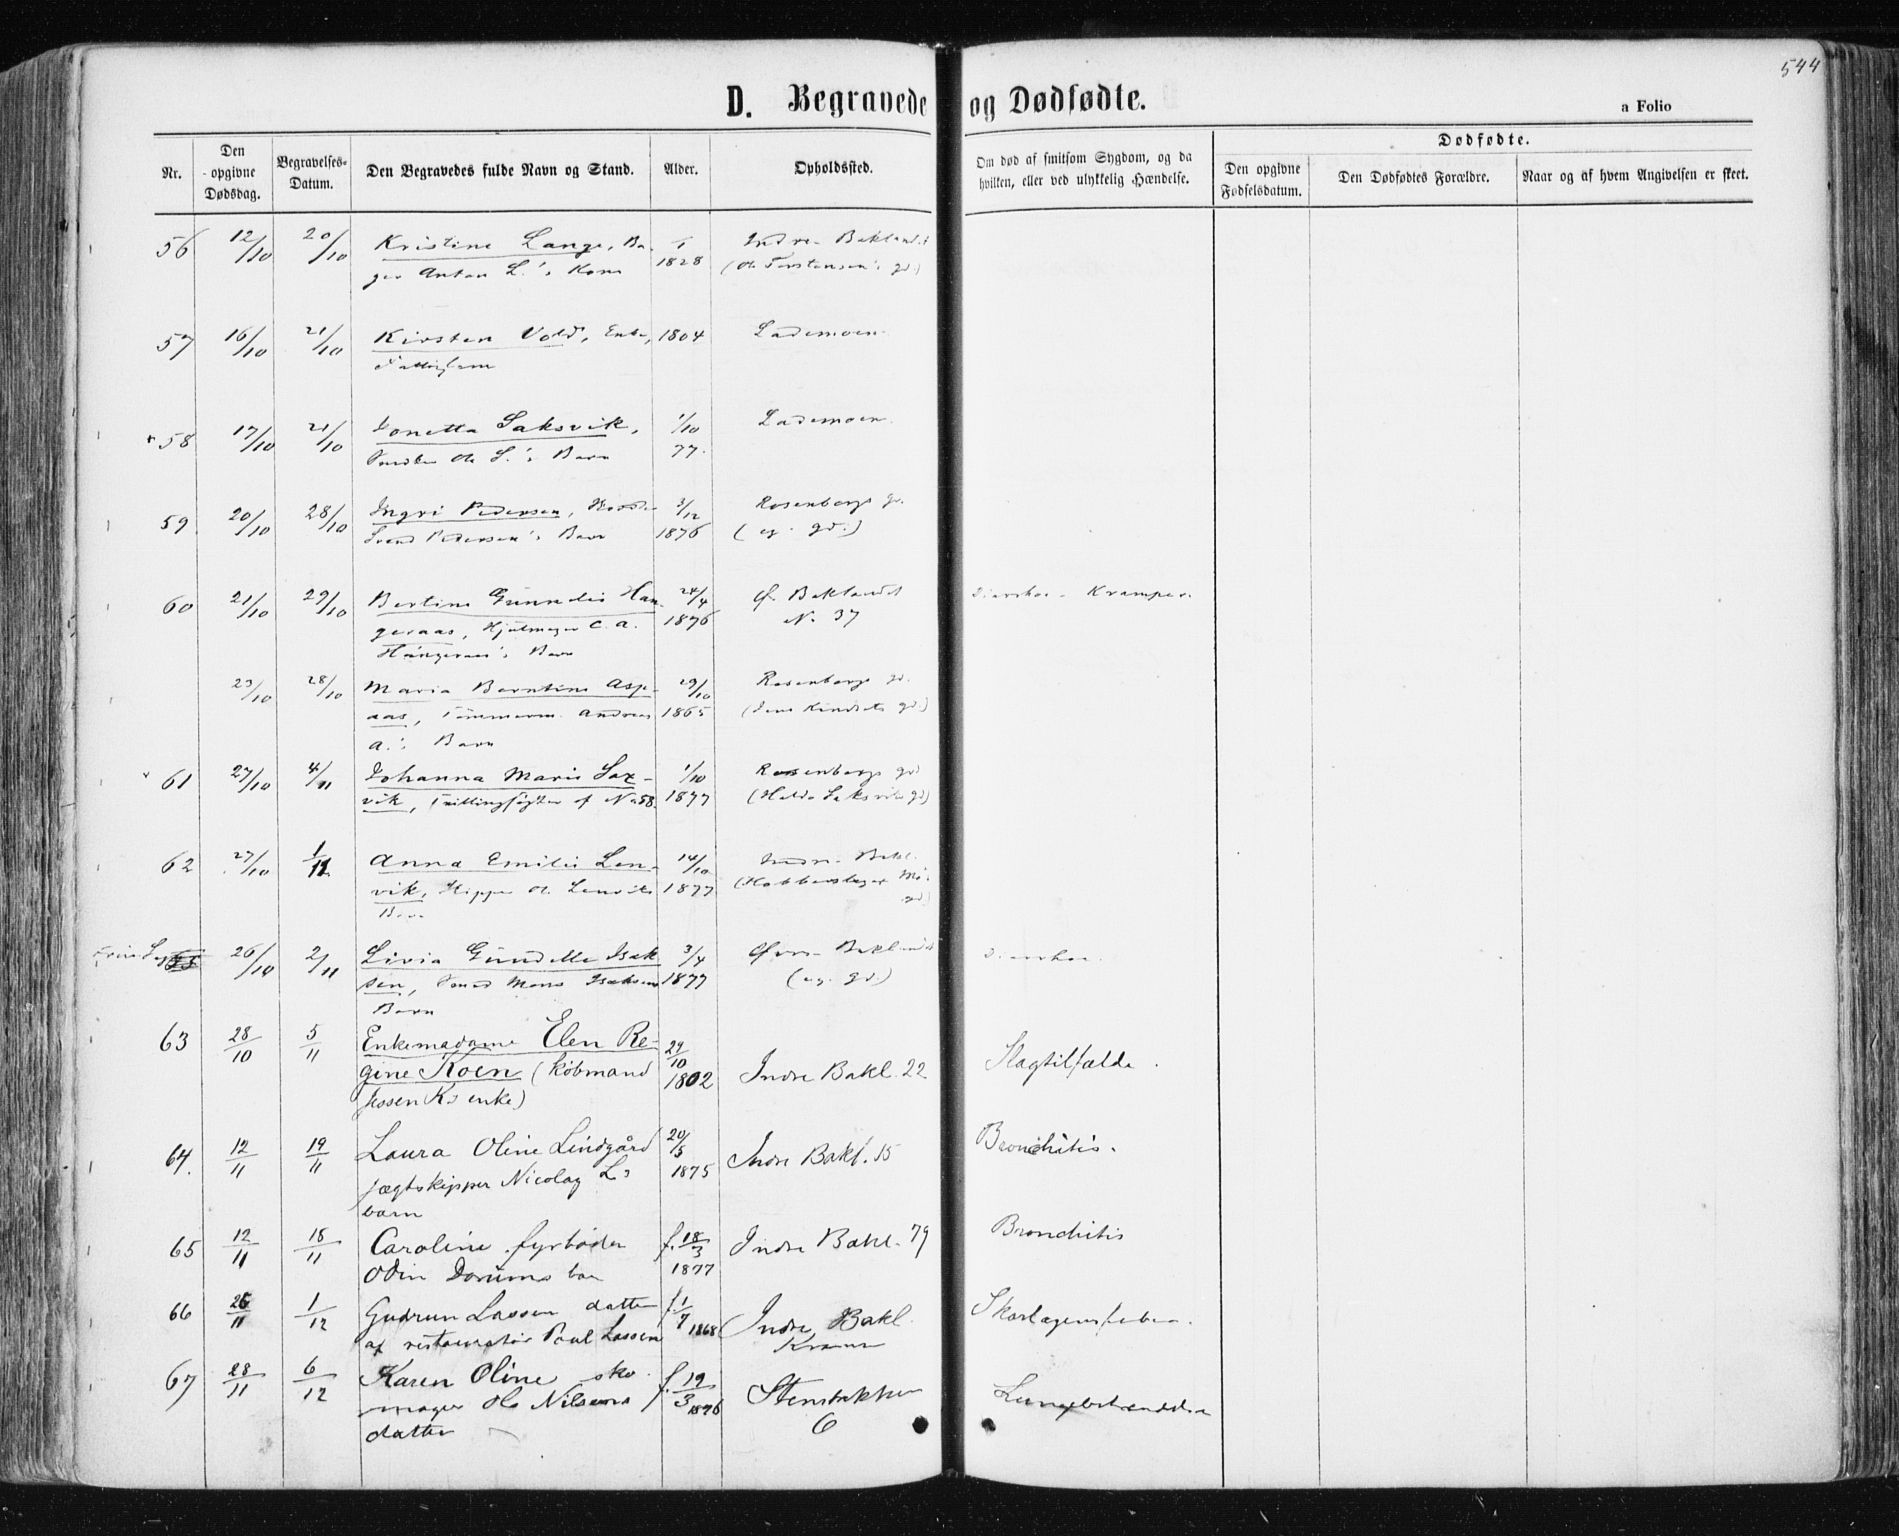 544
D. Begravede og Dødfødte.
a Folio
Nr.
Den opgivne Dødsdag.
Begravelses-Datum.
Den Begravedes fulde Navn og Stand.
Alder.
Opholdssted.
Om død af smitsom Sygdom, og da hvilken, eller ved ulykkelig Hændelse.
Dødfødte.
Den opgivne Fødselsdatum.
Den Dødfødtes Forældre.
Naar og af hvem Angivelsen er skeet.
56 12/10 20/10 Kristine Lange, Ba- 1828 Indre Baklandet
ger Anton L.'s Kone (Ole Torstensen's gd.)
57 16/10 21/10 Kirsten Vold, Enke, 1804 Lademoen
Fattiglem
58 17/10 21/10 Jonetta Saksvik, 1/10 Lademoen
Ole L.'s Barn 77.
59 20/10 28/10 Ingri Pedersen, 3/12 Rosenborgs gd.
Svend Pedersen's Barn 1876 (eg. gd.)
60 21/10 29/10 Bertine Gunnelie Han- 24/4 Ø. Baklandet Diarrhoe - Kramper.
geraas, Hjulmager C. A. 1876 N. 37
Hangeraas's Barn
23/10 28/10 Maria Berntine Asp- 29/10 Rosenborgs gd.
aas, Tømmerm. Andreas 1865 (Jens Kindsets gd.)
A.'s Barn
61 27/10 4/11 Johanna Marie Sax- 1/10 Rosenborgs gd
vik, Tvillingsøster af No 58. 1877 (Saksviks gd)
62 27/10 1/11 Anna Emilie Len- 14/10 Indre Bakl.
vik, Skipper O. Lenviks 1877
Barn
26/10 2/11 Livia Gundelle Isak 3/4 Øvre Baklandet Diarrhoe.
sen, Smed Mons Isaksens 1877 (eg. gd.)
Barn
63 28/10 5/11 Enkemadame Elen Re- 29/10
gine Koen (købmand 1802 Indre Bakl. 22 Slagtilfælde.
Jessen K's enke)
64. 12/11 19/11 Laura Oline Lindgård 20/5 Indre Bakl. 15 Bronchitis.
jægtskipper Nicolay L's 1875
barn
65 12/11 18/11 Caroline fyrbøder f. 18/3 Indre Bakl. 79 Bronchitis
Odin Dorums bar 1877
66 26/11 1/12 Gudrun Lassen datter f. 1/7 1868 Indre Bakl. Skarlagensfeber.
af restauratør Poul Lassen
67 28/11 6/12 Karen Oline sko- f. 19/3 1876 Stenbakken Lungebetændelse
mager Ole Nilsens 6
datter